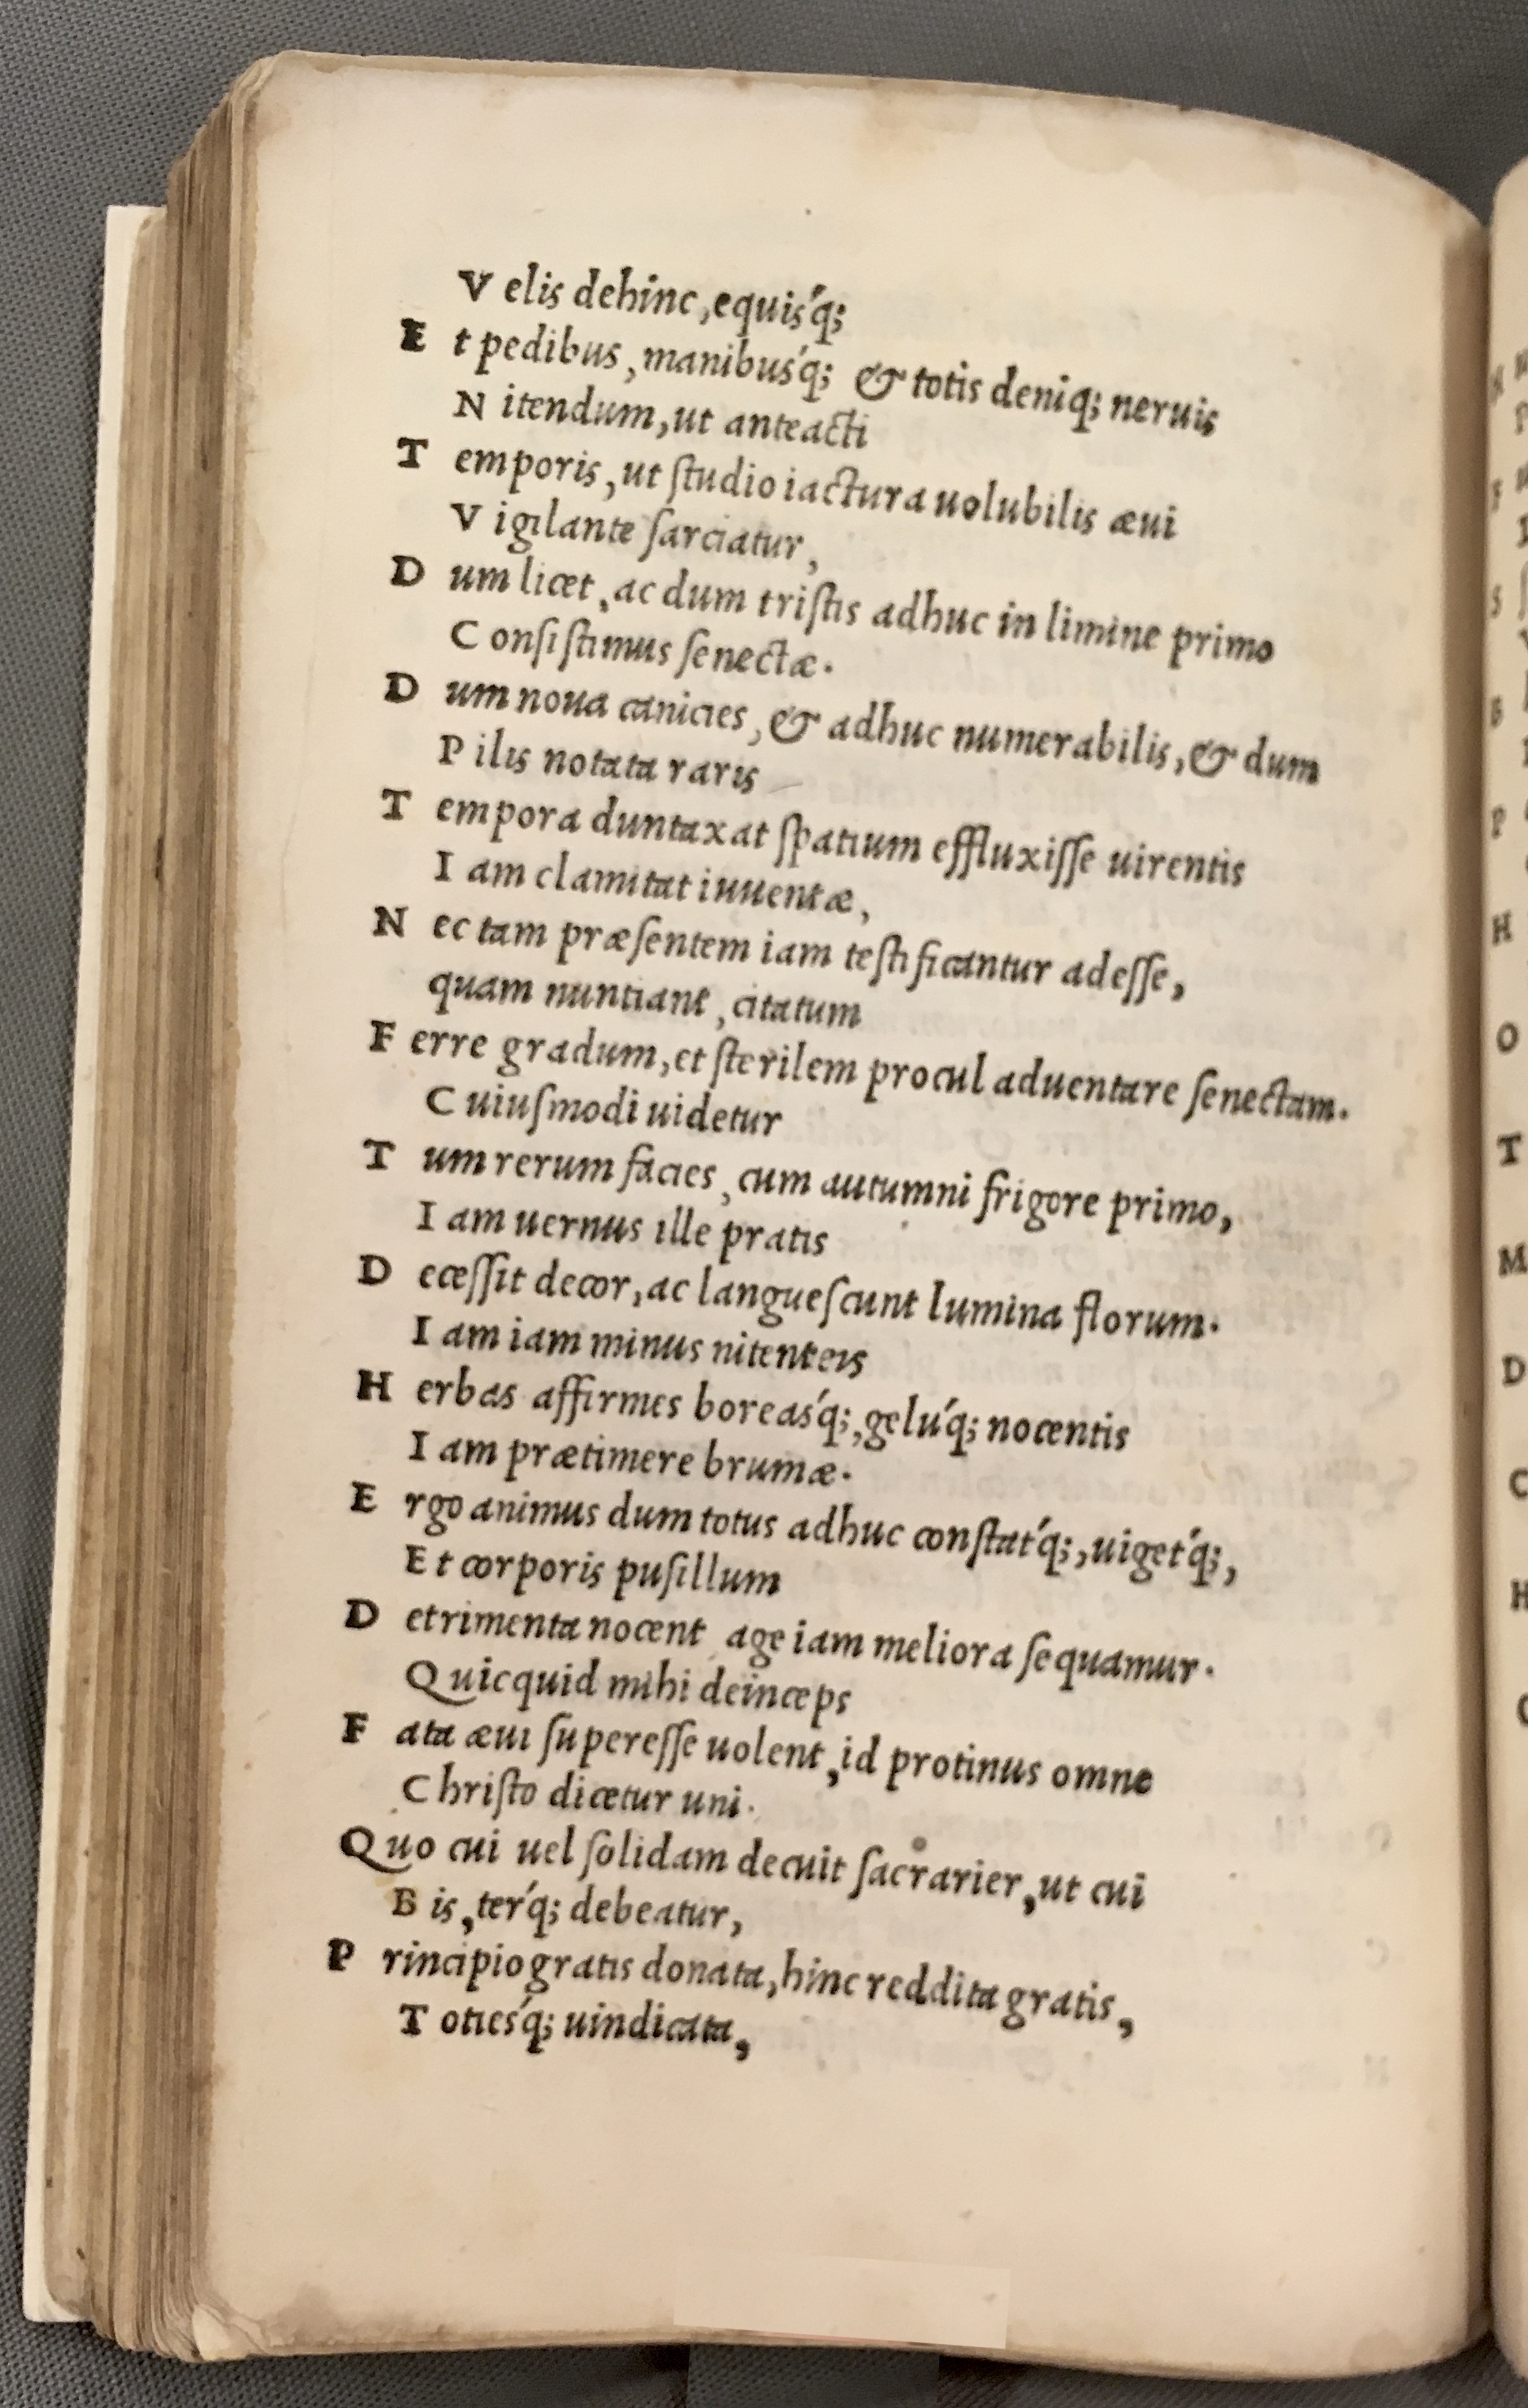 V elis dehinc, equis'q;
E t pedibus, manibus'q; & totis deniq; neruis
N itendum, ut anteacti
T emporis, ut ſtudio iactura uolubilis æui
V igilante ſarciatur,
D um licet, ac dum triſtis adhuc in limine primo
C onſiſtimus ſenectæ.
D um noua canicies, & adhuc numerabilis, & dum
P ilis notata raris
T empora duntaxat ſpatium effluxiſſe uirentis
I am clamitat iuuentæ,
N ec tam præſentem iam teſtificantur adeſſe,
quam nuntiant, citatum
F erre gradum, et ſterilem procul aduentare ſenectam.
C uiuſmodi uidetur
T um rerum facies, cum autumni frigore primo,
I am uernus ille pratis
D eceſſit decor, ac langueſcunt lumina florum.
I am iam minus nitenteis
H erbas affirmes boreas'q;, gelu'q; nocentis
I am prætimere brumæ.
E rgo animus dum totus adhuc conſtat'q;, uiget'q;,
E t corporis puſillum
D etrimenta nocent, age iam meliora ſequamur.
Q uicquid mihi deinceps
F ata æui ſupereſſe uolent, id protinus omne
C hriſto dicetur uni.
Q uo cui uel ſolidam decuit ſacrarier, ut cui
B is, ter'q; debeatur,
P rincipio gratis donata, hinc reddita gratis,
T oties'q; uindicata,